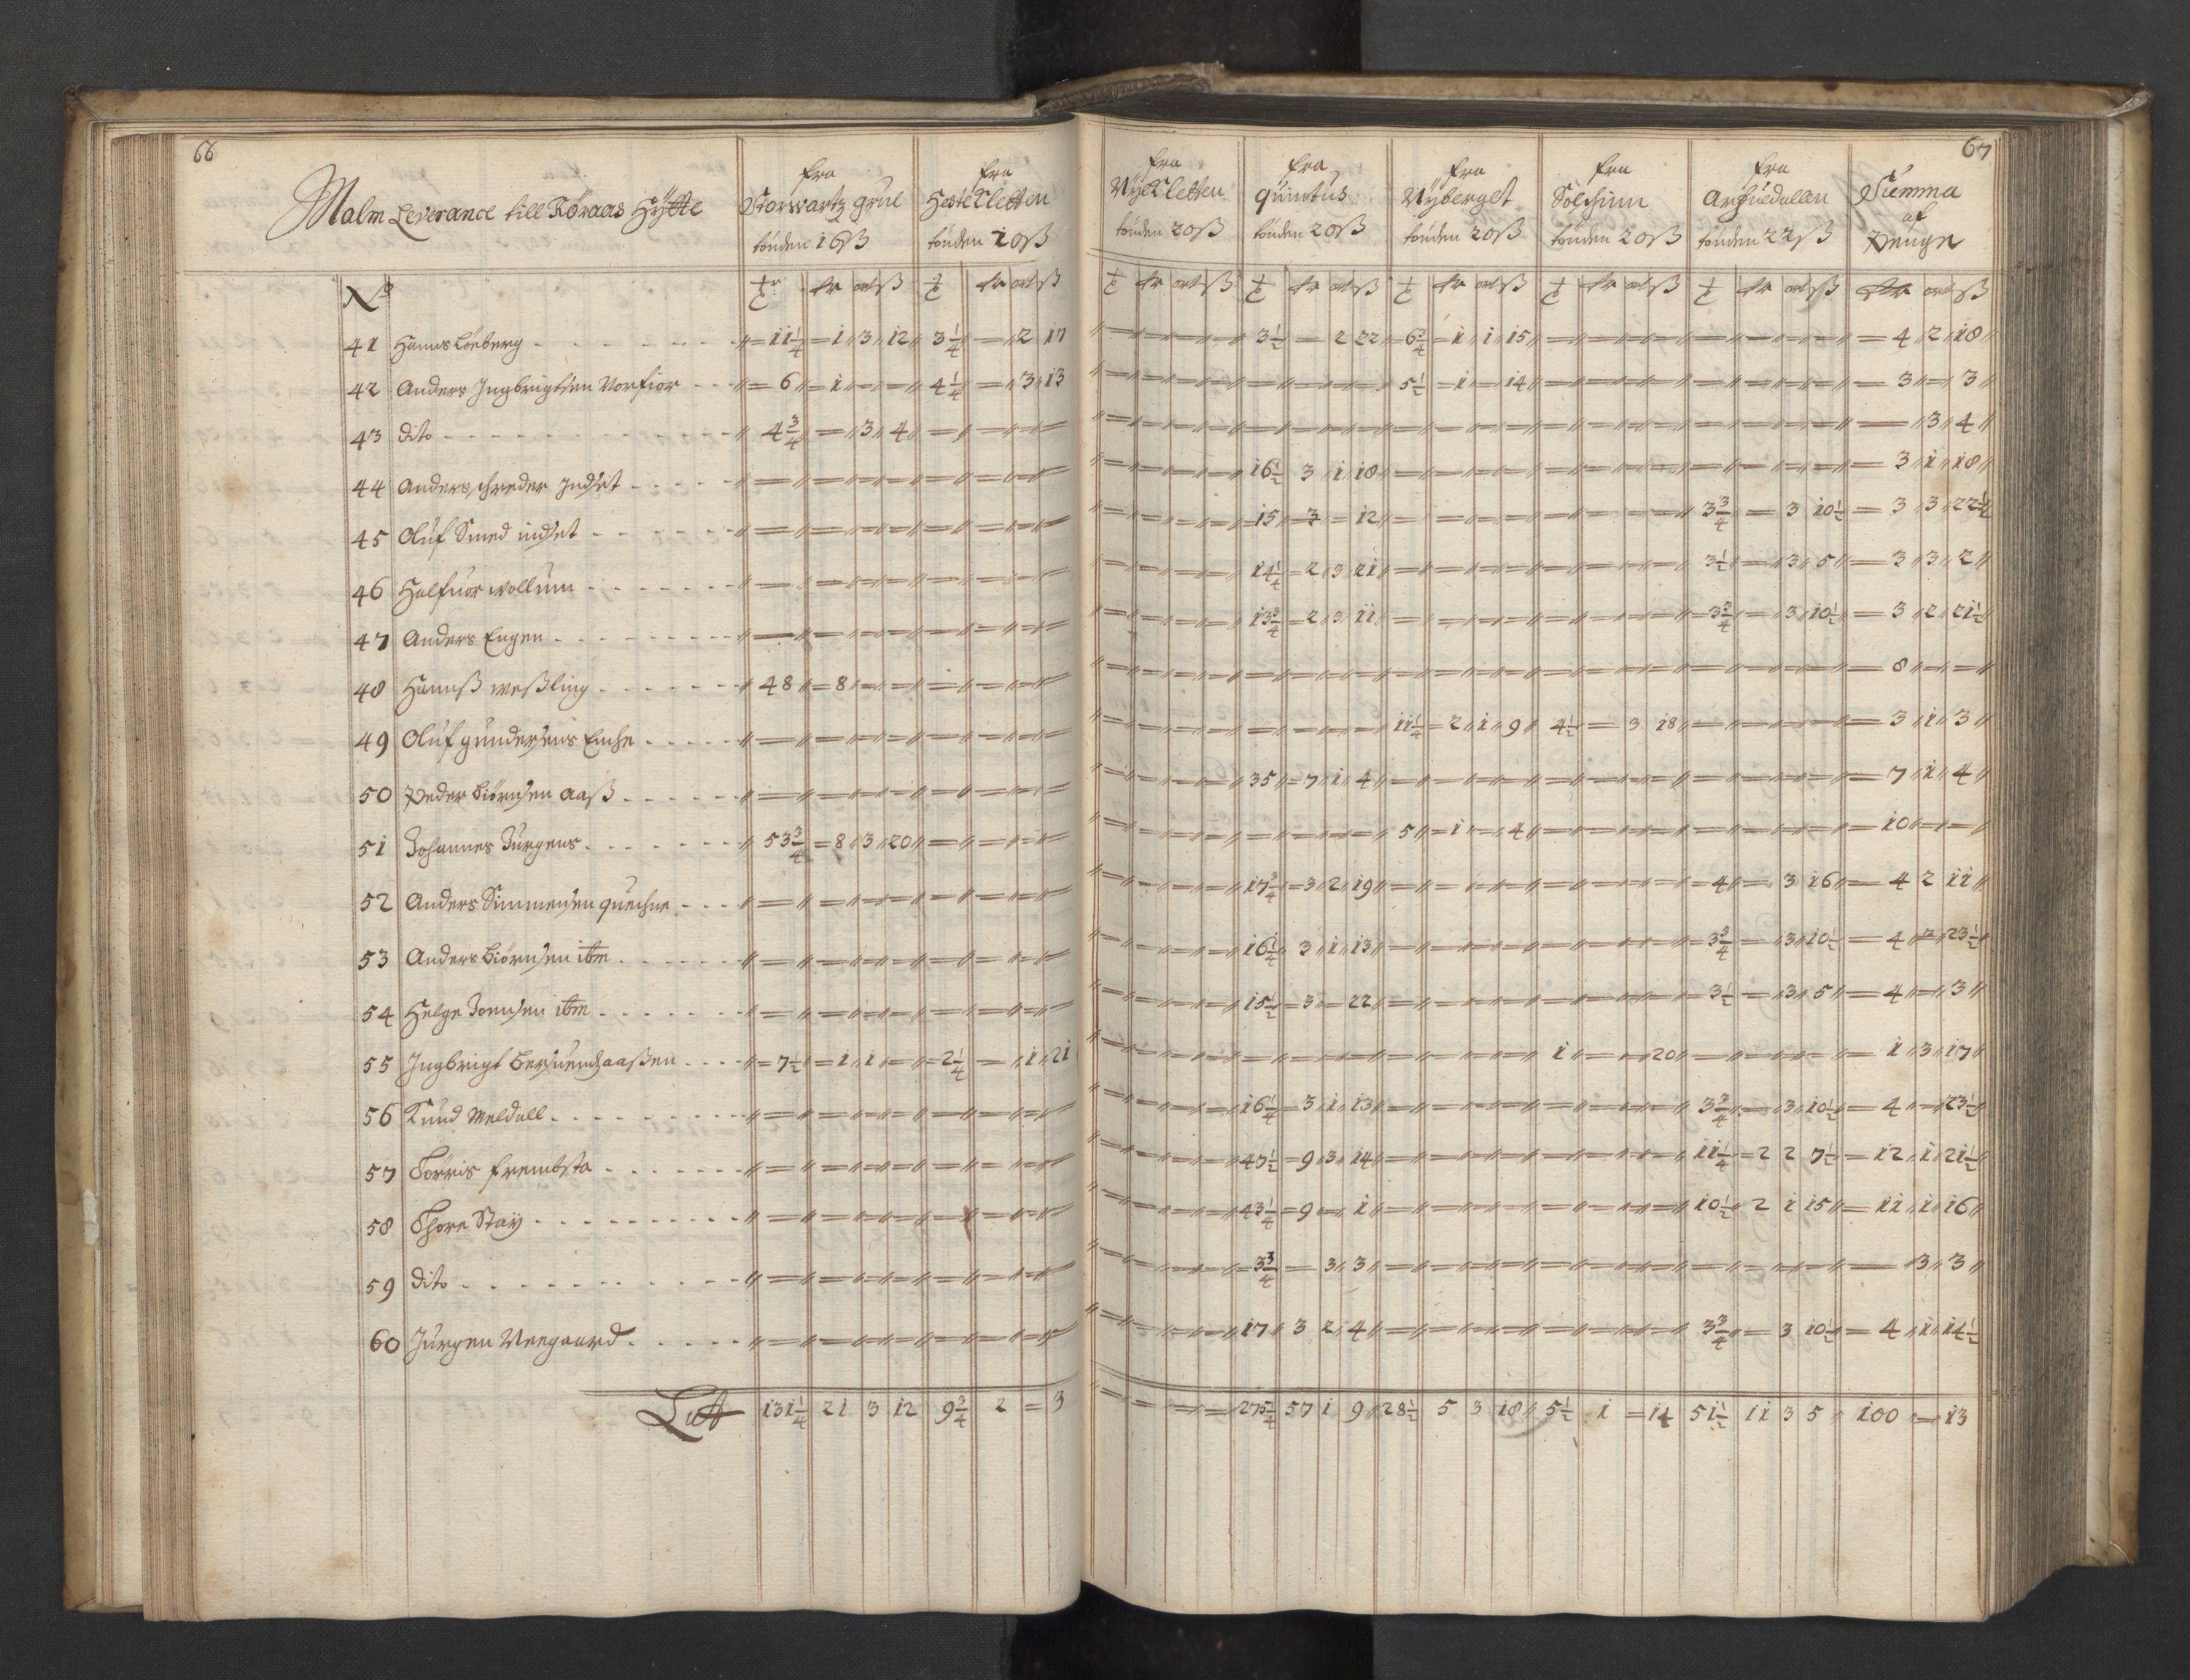 66
67
Malm Leverance till Röraas Hÿtte
fra Storwartz grue tönden 16ß
fra HesteKletten tönden 20ß
fra NyeKletten tönden 20ß
fra quintus tönden 20ß
fra Nyberget tönden 20ß
fra Solskinn tönden 20ß
fra Arfuedallen tönden 22ß
Summa af Penge
No
dr ort ß dr ort ß dr ort ß dr ort ß dr ort ß dr ort ß dr ort ß dr ort ß
41 Hanns Löeberg 11 1/4 1 3 12 3 1/4 2 17 3 1/2 2 22 6 3/4 1 1 15 4 2 18
42 Anders Ingbrigtsen Norfior 6 1 4 1/4 3 13 5 1/2 1 14 3 3
43 dito 4 3/4 3 4 3 4
44 Anders schreder Indset 16 1/2 3 1 18 3 1 18
45 Oluf Smed indset 15 3 12 3 3/4 3 10 1/2 3 3 22 1/2
46 Halfuor wollum 14 1/4 2 3 21 3 1/2 3 5 3 3 2
47 Anders Engen 13 3/4 2 3 11 3 3/4 3 10 1/2 3 2 21 1/2
48 Hannß weßling 48 8 8
49 Oluf gundersens Enche 11 1/4 2 1 9 4 1/2 3 18 3 1 3
50 Peder Biörnsen aaß 35 7 1 4 7 1 4
51 Johannes Jurgens 53 3/4 8 3 20 5 1 4 10
52 Anders Simmensen quechne 17 3/4 3 2 19 4 3 16 4 2 11
53 Anders Biörnsen itm 16 1/4 3 1 13 3 3/4 3 10 1/2 4 23 1/2
54 Helge Joensen itm 15 1/2 3 22 3 1/2 3 5 4 3
55 Ingbrigt 7 1/2 1 1 2 1/4 1 21 1 20 1 3 17
56 Knud Meldall 16 1/4 3 1 13 3 3/4 3 10 1/2 4 23 1/2
57 Törris frembsta 47 1/2 9 3 14 11 1/4 2 2 7 1/2 12 1 21 1/2
58 Thore Stay 43 1/4 9 1 10 1/2 2 1 15 11 1 16
59 dito 3 3/4 3 3 3 3
60 Jürgen Neegaard 17 3 2 4 3 3/4 3 10 1/2 4 1 14 1/2
Latt 131 1/4 21 3 12 9 3/4 2 3 275 1/4 57 1 9 28 1/2 5 3 18 5 1/2 1 14 51 1/2 11 3 5 100 13